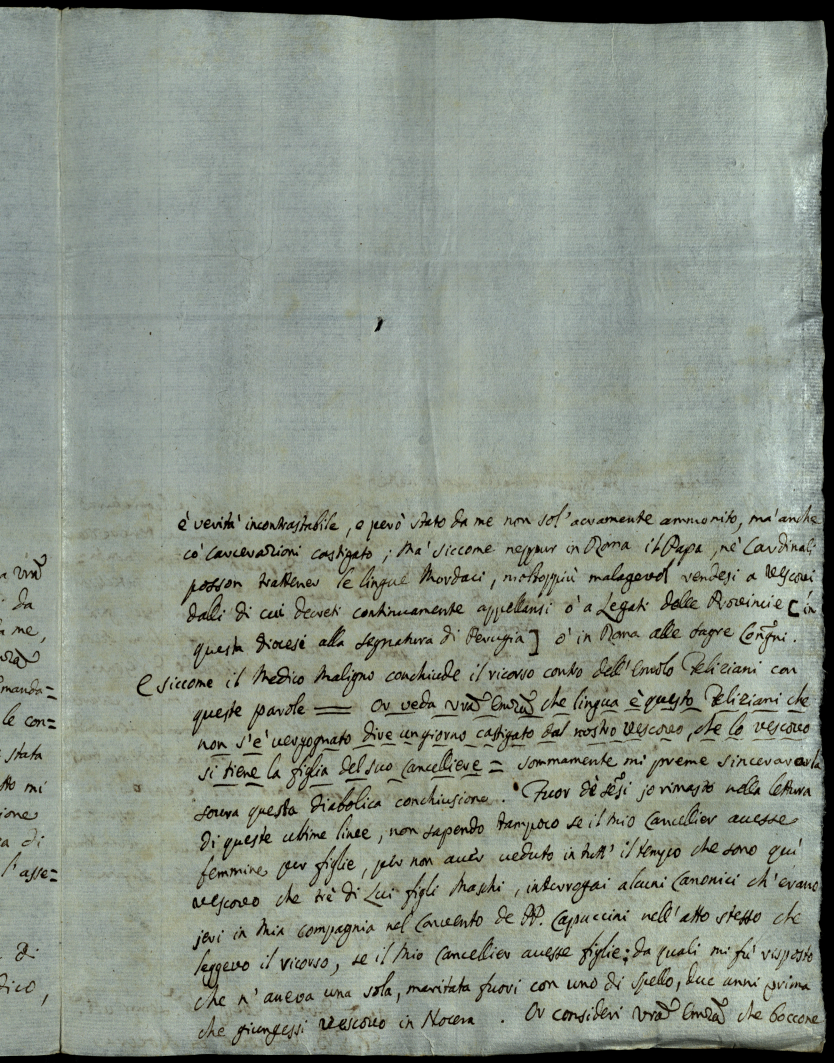 è verità incontrastabile, e però stato da me non sol' acramente ammonito, mà anche
cò carcerazioni castigato; Mà siccome neppur in Roma il Papa, nè Cardinali
posson trattener le lingue Mordaci, moltoppiù malagevol rendesi a Vescovi
dalli di cui decreti continuamente appellansi ò a Legati delle Provincie [in
questa diocesi alla Segnatura di Perugia] ò in Roma alle Sagre Congñi.
E siccome il Medico Maligno conchiude il ricorso contro dell' Feliziani con
queste parole = Or veda Vrã Emzã che lingua è questo Feliziani che
non s'è vergognato dire un giorno castigato dal nostro Vescovo, che lo Vescovo
si tiene la figlia del suo Cancelliere = sommamente mi preme sincerarla
sovra questa diabolica conchiusione. Fuor dè sensi jo rimasto nella lettura
di queste ultime linee, non sapendo tampoco se il mio Cancellier avesse
femmine per figlie, per non aver veduto in tutt' il tempo che sono quì
Vescovo che trè di Lui figli Maschi, interrogai alcuni Canonici ch' erano
jeri in Mia compagnia nel Convento de PP. Capuccini nell' atto stesso che
leggevo il ricorso, se il Mio Cancellier avesse figlie; da quali mi fù risposto
che n' aveva una sola, maritata fuori con uno di Spello, due anni prima
che giungessi Vescovo in Nocera. Or consideri Vrã Emzã che boccone
a Vrã
i da
a me,
manda=
le con=
stata
tto mi
ione
a di
l'asse=
di
dico,